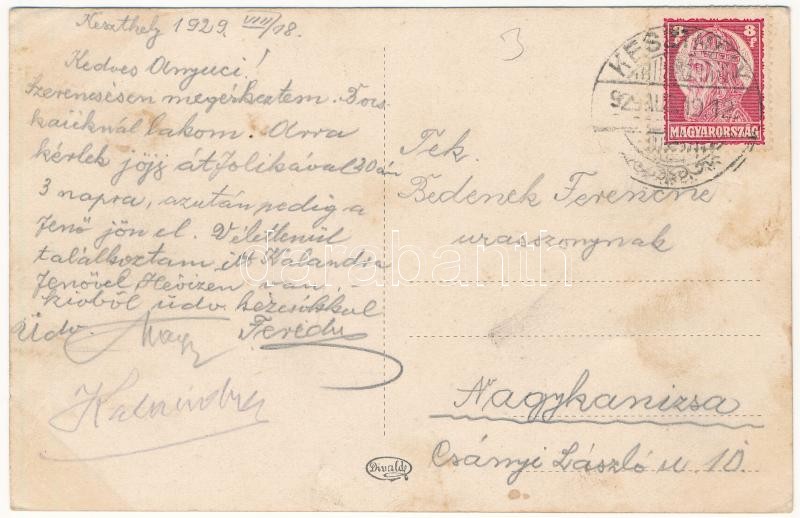 Keszthely 1929 VIII/18.
Kedves Anyuci!
Szerencsésen megérkeztem.
lakom. Arra
kérlek jöjj át Jolikával 20 án
3 napra, azután pedig a
Jenő jön el. Véletlenül
találkoztam itt
Jenővel Hévizen van
üdv. kézcsókkal
Üdv. Nagy
3
8f 8f
KESZTHELY
929
MAGYARORSZÁG
Tek.
Bedenek Ferencné
urasszonynak
Nagykanizsa
Csányi László u 10.
Divald
darabanth